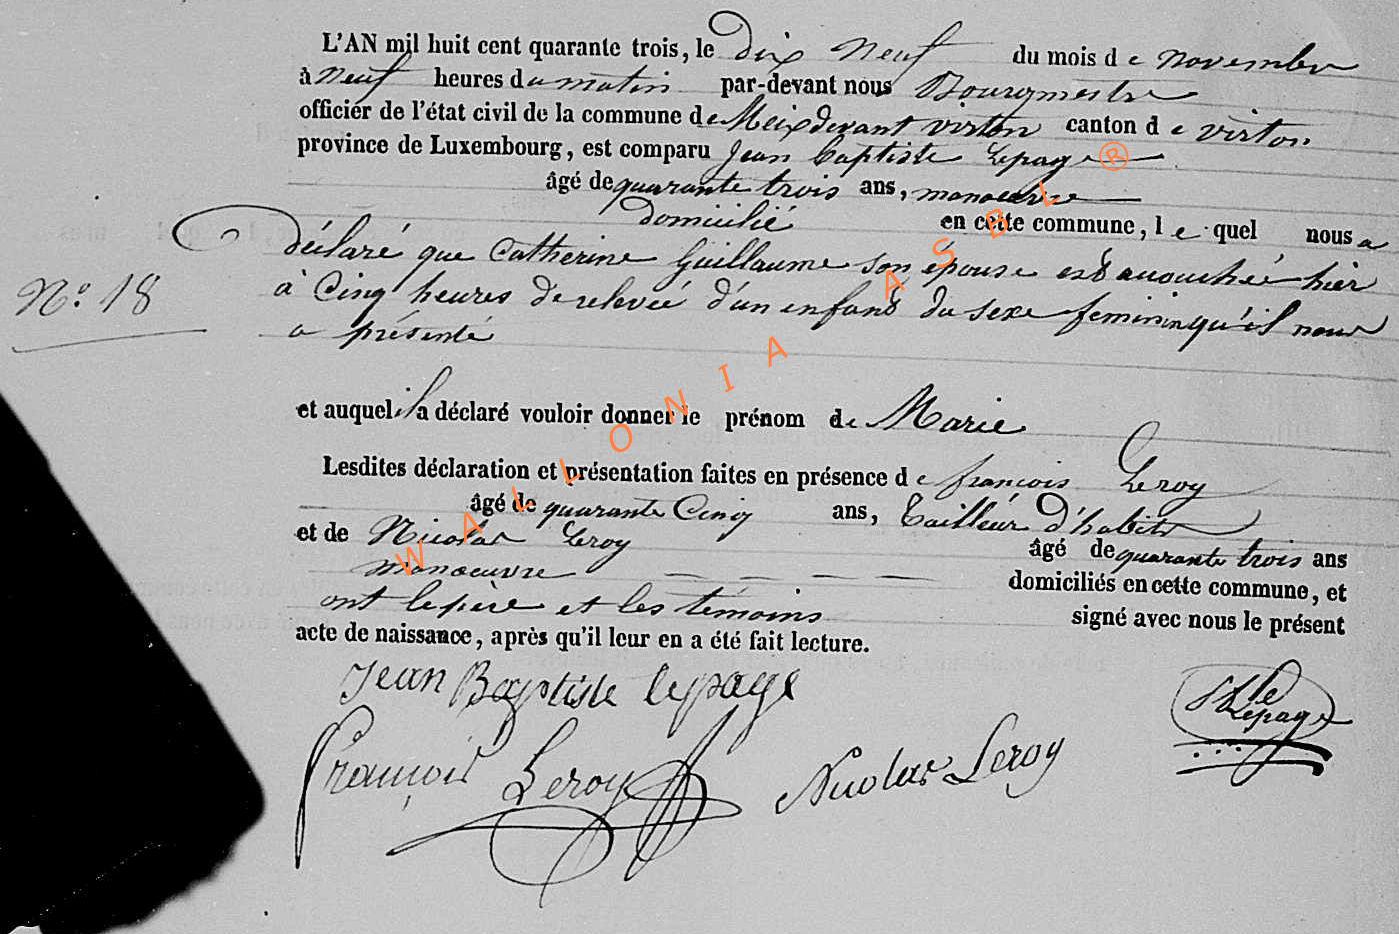 L'AN mil huit cent quarante trois, le dix neuf du mois de novembre
à neuf heures du matin par-devant nous Bourgmestre
officier de l'état civil de la commune de Meix devant virton canton de virton
province de Luxembourg, est comparu Jean baptiste Lepage ®
âgé de quarante trois ans, manoeuvre
domicilié en cette commune, le quel nous a
déclaré que Catherine Guillaume son épouse est accouchée hier
N.o 18
à Cinq heures de relevée d'un enfant du sexe feminin qu'il nous
a présenté
et auquel il a déclaré vouloir donner le prénom de Marie
Lesdites déclaration et présentation faites en présence de françois Leroy
âgé de quarante Cinq ans, tailleur d'habits
et de Nicolas Leroy âgé de quarante trois ans
manoeuvre domiciliés en cette commune, et
ont le père et les témoins signé avec nous le présent
acte de naissance, après qu'il leur en a été fait lecture.
Jean Baptiste lepage
Lepage
François Leroy Nicolas Leroy
WALLONIA ASBL